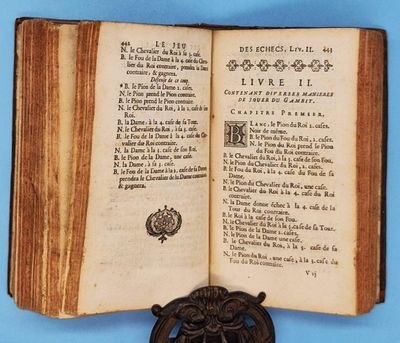 442 LE JEU
N. le Chevalier du Roi à sa 3. case.
B. le Fou de la Dame à la 4. case du Chevalier du Roi contraire, prendra la Dame contraire, & gagnera.
Défense de ce coup.
* B. le Pion de la Dame 2. cases.
N. le Pion prend le Pion contraire.
B. le Pion prend le Pion contraire.
N. le Chevalier du Roi, à la 2. case de son Roi.
B. la Dame, à la 4. case de sa Tour.
N. le Chevalier du Roi, à sa 3. case.
B. le Fou de la Dame à la 4. case du Chevalier du Roi contraire.
N. la Dame à la 3. case de son Roi.
B. le Pion de la Dame, une case.
N. la Dame, à sa 3. case.
B. le Fou de la Dame, à la 2. case de sa Dame prendra le Chevalier de la Dame contraire & gagnera.
DES ECHECS, LIV. II. 443
LIVRE II.
CONTENANT DIVERSES MANIERES
DE JOUER DU GAMBIT.
CHAPITRE PREMIER.
BLANC, le Pion du Roi 2. cases.
Noir de même.
B. le Pion du Fou du Roi, 2. cases.
N. le Pion du Roi prend le Pion
du Fou du Roi contraire.
B. le Chevalier du Roi, à la 3. case de son Fou.
N. le Pion du Chevalier du Roi 2. cases.
B. le Fou du Roi, à la 4. case du Fou de sa
Dame.
N. le Pion du Chevalier du Roi, une case.
B. le Chevalier du Roi à la 4. case du Roi
contraire.
N. la Dame donne échec à la 4. case de la
Tour du Roi contraire.
B. le Roi à la case de son Fou.
N. le Chevalier du Roi à la 3. case de sa Tour.
B. le Pion de la Dame 2. cases.
N. le Pion de la Dame une case.
B. le Chevalier du Roi, à la 3. case de sa
Dame.
N. le Pion du Roi, une case, à la 3. case du
Fou du Roi contraire.
V vj